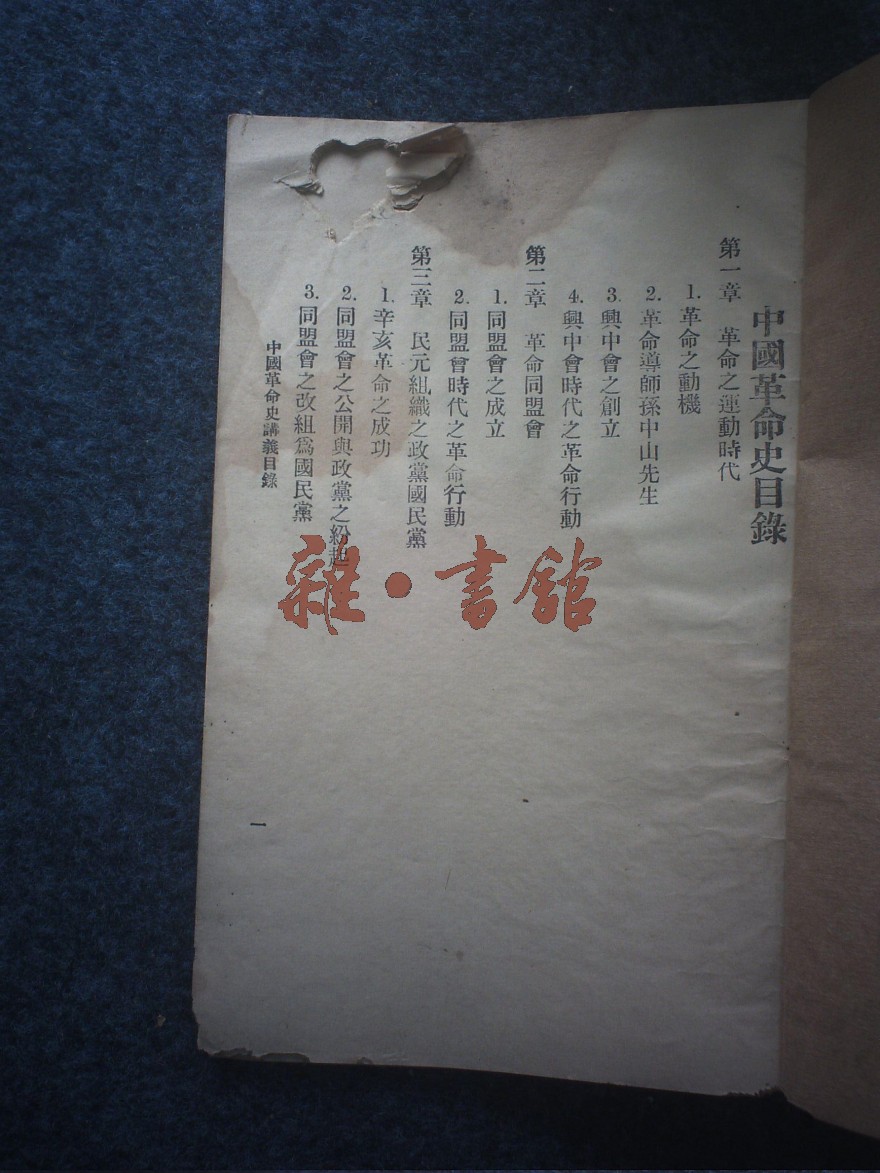 中國革命史目錄
第一章　革命之運動時代
1. 革命之動機
2. 革命導師孫中山先生
3. 興中會之創立
4. 興中會時代之革命行動
第二章　革命同盟會
1. 同盟會之成立
2. 同盟會時代之革命行動
第三章　民元組織之政黨國民黨
1. 辛亥革命之成功
2. 同盟會之公開與政黨之紛起
3. 同盟會之改組爲國民黨
中國革命史講義目錄
一
雜·書館